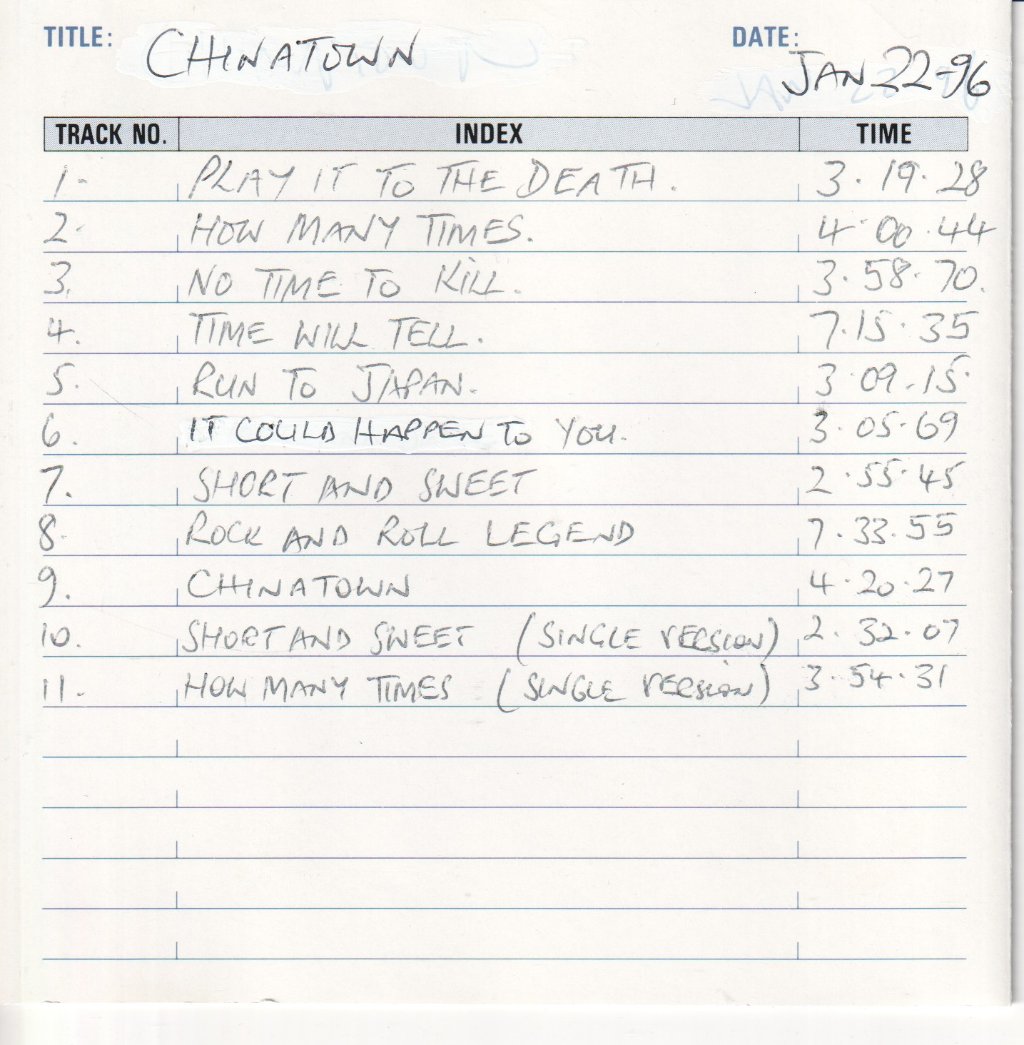 TITLE: CHINATOWN DATE: JAN 22-96
TRACK NO. INDEX TIME
1- PLAY IT TO THE DEATH. 3.19.28
2. HOW MANY TIMES. 4.00.44
3. NO TIME TO KILL. 3.58.70.
4. TIME WILL TELL. 7.15.35
5. RUN TO JAPAN. 3.09.15.
6. IT COULD HAPPEN TO YOU. 3.05.69
7. SHORT AND SWEET 2.55.45
8. ROCK AND ROLL LEGEND 7.33.55
9. CHINATOWN 4.20.27
10. SHORT AND SWEET (SINGLE VERSION) 2.32.07
11. HOW MANY TIMES (SINGLE VERSION) 3.54.31